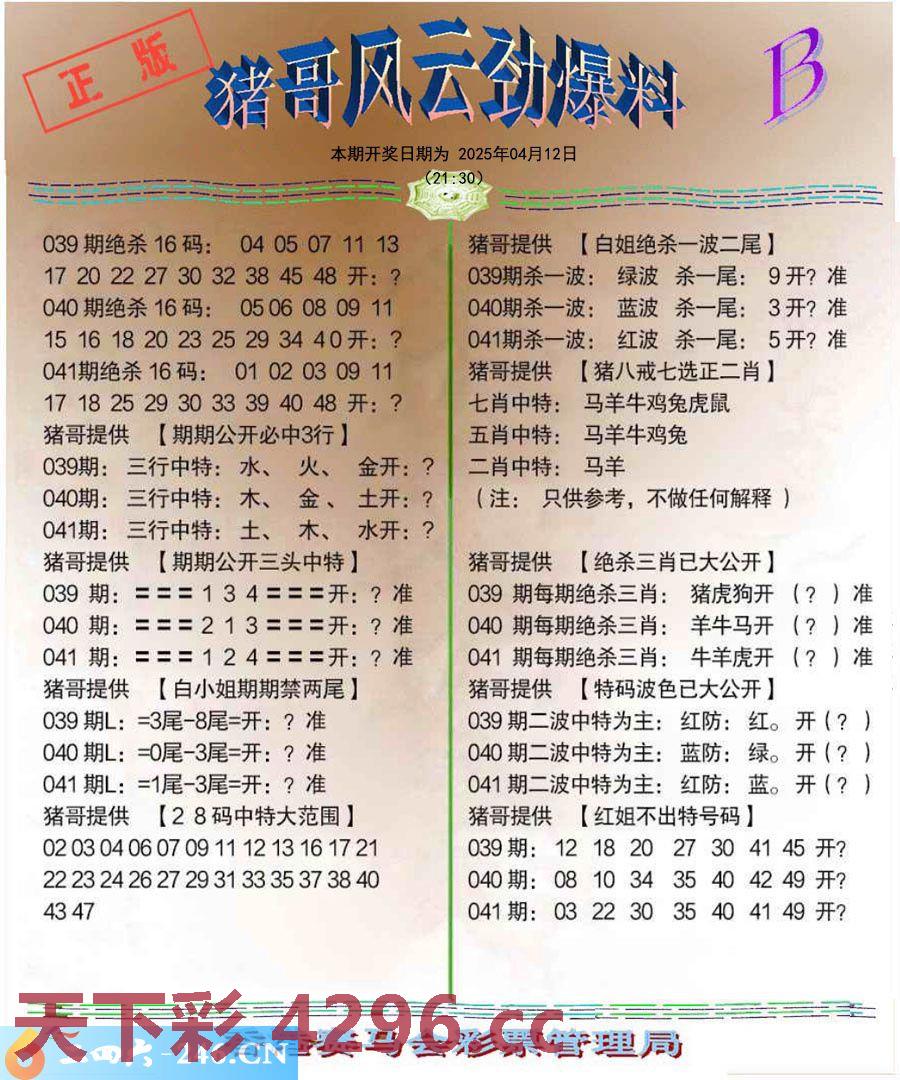 正版
猪哥风云劲爆料
B
本期开奖日期为 2025年04月12日
(21:30)
039 期绝杀 16 码： 04 05 07 11 13
17 20 22 27 30 32 38 45 48 开：?
040 期绝杀 16 码： 05 06 08 09 11
15 16 18 20 23 25 29 34 40 开：?
041期绝杀 16 码： 01 02 03 09 11
17 18 25 29 30 33 39 40 48 开：?
猪哥提供 【期期公开必中3行】
039期：三行中特：水、 火、 金开：?
040期：三行中特：木、 金 、 土开：?
041期：三行中特：土、 木、 水开：?
猪哥提供 【期期公开三头中特】
039 期：〓〓〓 1 3 4 〓〓〓开：? 准
040 期：〓〓〓 2 1 3 〓〓〓开：? 准
041 期：〓〓〓 1 2 4 〓〓〓开：? 准
猪哥提供 【白小姐期期禁两尾】
039 期L：=3尾-8尾=开：? 准
040 期L：=0尾-3尾=开：? 准
041 期L：=1尾-3尾=开：? 准
猪哥提供 【２８码中特大范围】
02 03 04 06 07 09 11 12 13 16 17 21
22 23 24 26 27 29 31 33 35 37 38 40
43 47
猪哥提供 【白姐绝杀一波二尾】
039期杀一波： 绿波 杀一尾： 9 开? 准
040期杀一波： 蓝波 杀一尾： 3 开? 准
041期杀一波： 红波 杀一尾： 5 开? 准
猪哥提供 【猪八戒七选正二肖】
七肖中特： 马羊牛鸡兔虎鼠
五肖中特： 马羊牛鸡兔
二肖中特： 马羊
（注： 只供参考，不做任何解释 ）
猪哥提供 【绝杀三肖已大公开】
039 期每期绝杀三肖： 猪虎狗开 （? ）准
040 期每期绝杀三肖： 羊牛马开 （? ）准
041 期每期绝杀三肖： 牛羊虎开 （? ）准
猪哥提供 【特码波色已大公开】
039 期二波中特为主： 红防： 红。 开（? ）
040 期二波中特为主： 蓝防： 绿。 开（? ）
041 期二波中特为主： 红防： 蓝。 开（? ）
猪哥提供 【红姐不出特号码】
039 期： 12 18 20 27 30 41 45 开?
040 期： 08 10 34 35 40 42 49 开?
041 期： 03 22 30 35 40 41 49 开?
天下彩 4296.cc
二四六-246.CN
马会彩票管理局